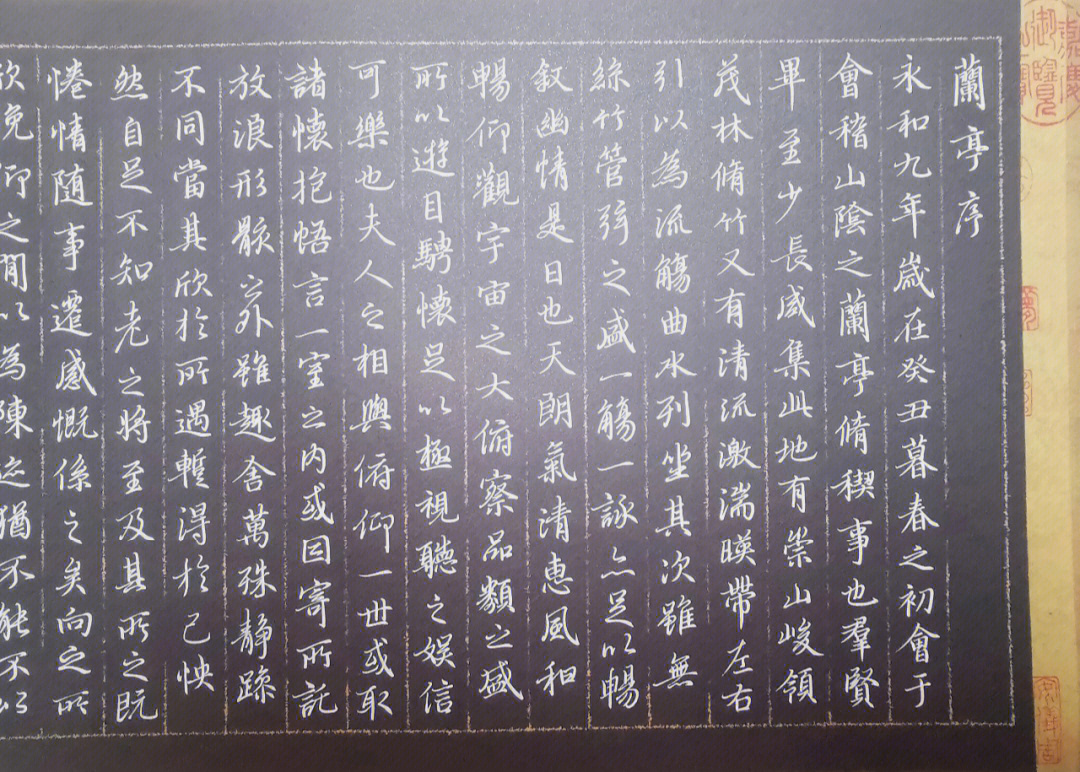 蘭亭序
永和九年歲在癸丑暮春之初會于
會稽山陰之蘭亭脩稧事也羣賢
畢至少長咸集此地有崇山峻領
茂林脩竹又有清流激湍暎帶左右
引以為流觴曲水列坐其次雖無
絲竹管弦之盛一觴一詠亦足以暢
叙幽情是日也天朗氣清惠風和
暢仰觀宇宙之大俯察品類之盛
所以遊目騁懷足以極視聽之娛信
可樂也夫人之相與俯仰一世或取
諸懷抱悟言一室之内或因寄所託
放浪形骸之外雖趣舍萬殊静躁
不同當其欣於所遇蹔得於己怏
然自足不知老之將至及其所之既
惓情随事遷感慨係之矣向之所
欣俛仰之閒以為陳迹猶不能不以
御覽